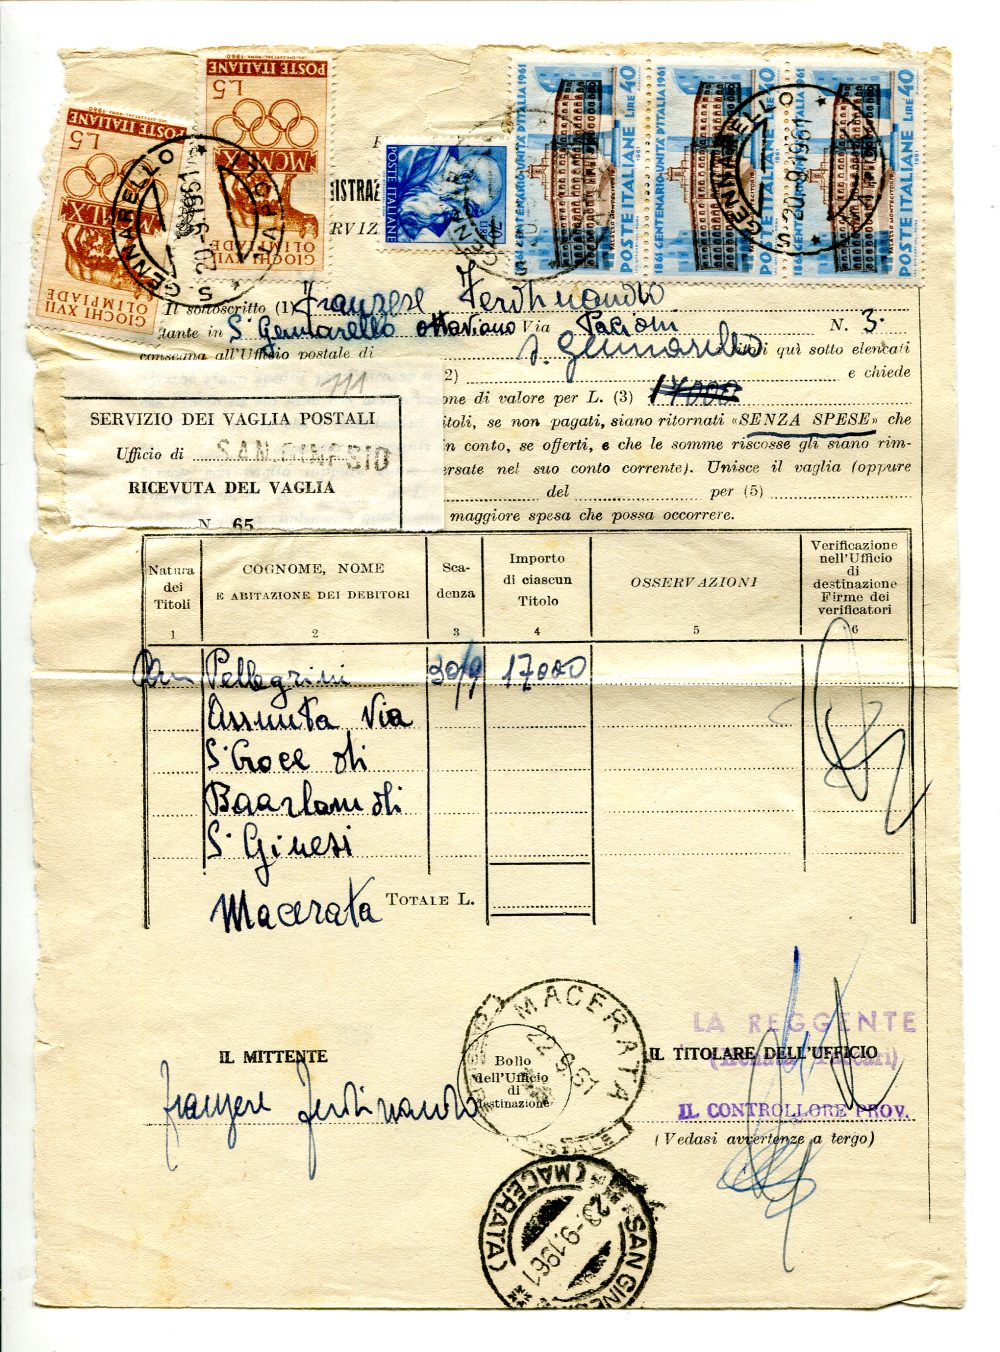 POSTE ITALIANE
L5
MCMLX
GIOCHI XVII
OLIMPIADE
POSTE ITALIANE
L5
MCMLX
GIOCHI XVII
OLIMPIADE
POSTE ITALIANE
LIRE 70
1861 CENTENARIO-UNITÀ D'ITALIA 1961
POSTE ITALIANE LIRE 40
1861 CENTENARIO-UNITÀ D'ITALIA 1961
POSTE ITALIANE LIRE 40
1861 CENTENARIO-UNITÀ D'ITALIA 1961
POSTE ITALIANE LIRE 40
S. GENNARELLO
20-9-1961
NAPOLI
S. GENNARELLO
20-9-1961
ISTRAZ
RVIZ
Il sottoscritto (1) Franzese Ferdinando
tante in S. Gennarello Ottaviano Via Pacioni N. 3.
consegna all'Ufficio postale di S. Gennarello titoli quì sotto elencati
2) e chiede
one di valore per L. (3) 17000
itoli, se non pagati, siano ritornati «SENZA SPESE» che
n conto, se offerti, e che le somme riscosse gli siano rim-
ersate nel suo conto corrente). Unisce il vaglia (oppure
del per (5)
maggiore spesa che possa occorrere.
111
SERVIZIO DEI VAGLIA POSTALI
Ufficio di SAN GINESIO
RICEVUTA DEL VAGLIA
N. 65
Natura dei Titoli
COGNOME, NOME
E ABITAZIONE DEI DEBITORI
Sca-
denza
Importo
di ciascun
Titolo
OSSERVAZIONI
Verificazione
nell'Ufficio
di
destinazione
Firme dei
verificatori
1 2 3 4 5 6
Pellegrini 30/9 17000
Assunta Via
S. Croce di
S. Ginesi
Macerata
TOTALE L.
IL MITTENTE
Franzese Ferdinando
MACERATA
22 9 61
Bollo
dell'Ufficio
di
destinazione
LA REGGENTE
IL TITOLARE DELL'UFFICIO
IL CONTROLLORE PROV.
(Vedasi avvertenze a tergo)
SAN GINESIO
(MACERATA)
23-9.1961